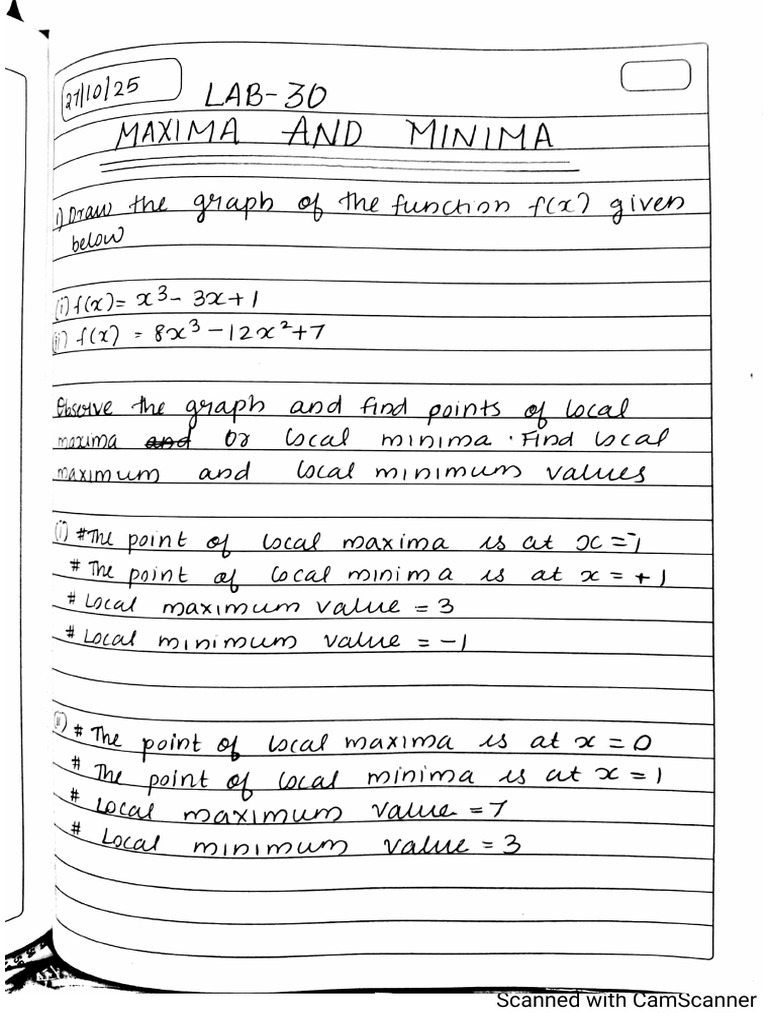 27/10/25
LAB-30
MAXIMA AND MINIMA
1) Draw the graph of the function f(x) given
below
(i) f(x) = x³ - 3x + 1
(ii) f(x) = 8x³ - 12x² + 7
Observe the graph and find points of local
maxima and or local minima. Find local
maximum and local minimum values
(i) # The point of local maxima is at x = -1
# The point of local minima is at x = +1
# Local maximum value = 3
# Local minimum value = -1
(ii) # The point of local maxima is at x = 0
# The point of local minima is at x = 1
# Local maximum value = 7
# Local minimum value = 3
Scanned with CamScanner